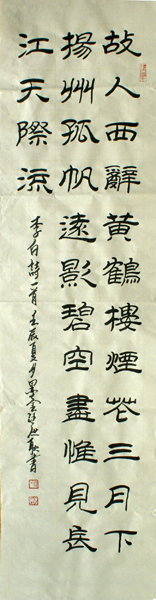 故人西辭黃鶴樓煙花三月下
揚州孤帆遠影碧空盡惟見長
江天際流
李白詩一首壬辰夏月